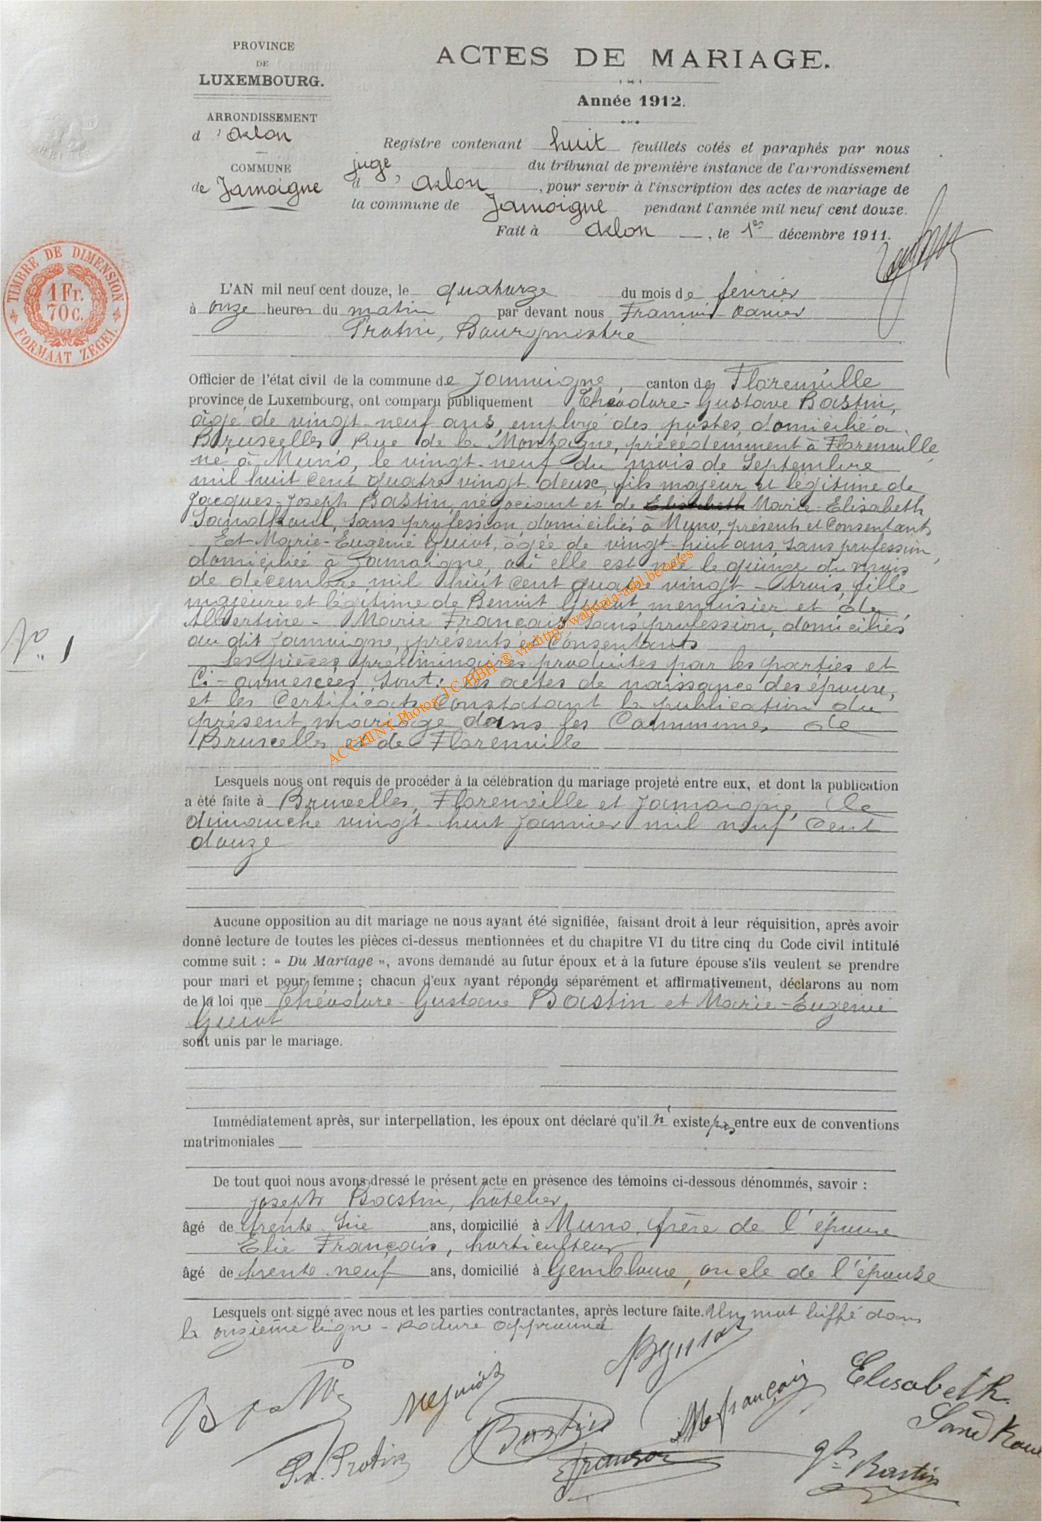 PROVINCE
DE
LUXEMBOURG.
ARRONDISSEMENT
d'Arlon
COMMUNE
de Jamoigne
ACTES DE MARIAGE.
Année 1912.
Registre contenant huit feuillets cotés et paraphés par nous
juge du tribunal de première instance de l'arrondissement
d'Arlon, pour servir à l'inscription des actes de mariage de
la commune de Jamoigne pendant l'année mil neuf cent douze.
Fait à Arlon, le 1er décembre 1911.
TIMBRE DE DIMENSION
1 Fr.
70 c.
FORMAAT ZEGEL
L'AN mil neuf cent douze, le quatorze du mois de février
à onze heures du matin par devant nous François Xavier
Protin, Bourgmestre
Officier de l'état civil de la commune de Jamoigne, canton de Florenville
province de Luxembourg, ont comparu publiquement Théodore-Gustave Bastin,
âgé de vingt-neuf ans, employé des postes, domicilié à
Bruxelles Rue de la Montagne, précédemment à Florenville
né à Muno, le vingt-neuf du mois de Septembre
mil huit cent quatre vingt deux, fils majeur et légitime de
Jacques-Joseph Bastin négociant et de Elisabeth Marie-Elisabeth
Sandkaul, sans profession, domiciliés à Muno, présents et consentants
Et Marie-Eugénie Guiot, âgée de vingt-huit ans, sans profession,
domiciliée à Jamoigne, où elle est née le quinze du mois
de décembre mil huit cent quatre vingt-trois, fille
majeure et légitime de Benoit Guiot menuisier et de
Albertine-Marie François sans profession, domiciliés
au dit Jamoigne, présents et consentants
Les pièces préliminaires produites par les parties et
ci-annexées sont: les actes de naissance des époux,
et les Certificats constatant la publication du
présent mariage dans les Communes de
Bruxelles et de Florenville
No 1
AC CHINY Photos J.C BBH ® via http: wallonia-asbl.be/actes
Lesquels nous ont requis de procéder à la célébration du mariage projeté entre eux, et dont la publication
a été faite à Bruxelles, Florenville et Jamoigne, le
dimanche vingt-huit Janvier mil neuf cent
douze
Aucune opposition au dit mariage ne nous ayant été signifiée, faisant droit à leur réquisition, après avoir
donné lecture de toutes les pièces ci-dessus mentionnées et du chapitre VI du titre cinq du Code civil intitulé
comme suit : « Du Mariage », avons demandé au futur époux et à la future épouse s'ils veulent se prendre
pour mari et pour femme ; chacun d'eux ayant répondu séparément et affirmativement, déclarons au nom
de la loi que Théodore-Gustave Bastin et Marie-Eugénie
Guiot
sont unis par le mariage.
Immédiatement après, sur interpellation, les époux ont déclaré qu'il n'existe pas entre eux de conventions
matrimoniales
De tout quoi nous avons dressé le présent acte en présence des témoins ci-dessous dénommés, savoir :
Joseph Bastin, hôtelier
âgé de trente-six ans, domicilié à Muno, frère de l'époux
Elie François, horticulteur
âgé de trente-neuf ans, domicilié à Gembloux, oncle de l'épouse
Lesquels ont signé avec nous et les parties contractantes, après lecture faite. Un mot biffé dans
la onzième ligne - Rature approuvée
Elisabeth
Sandkaul
M françois
Bastin
E françois
Fx. Protin
Bastin